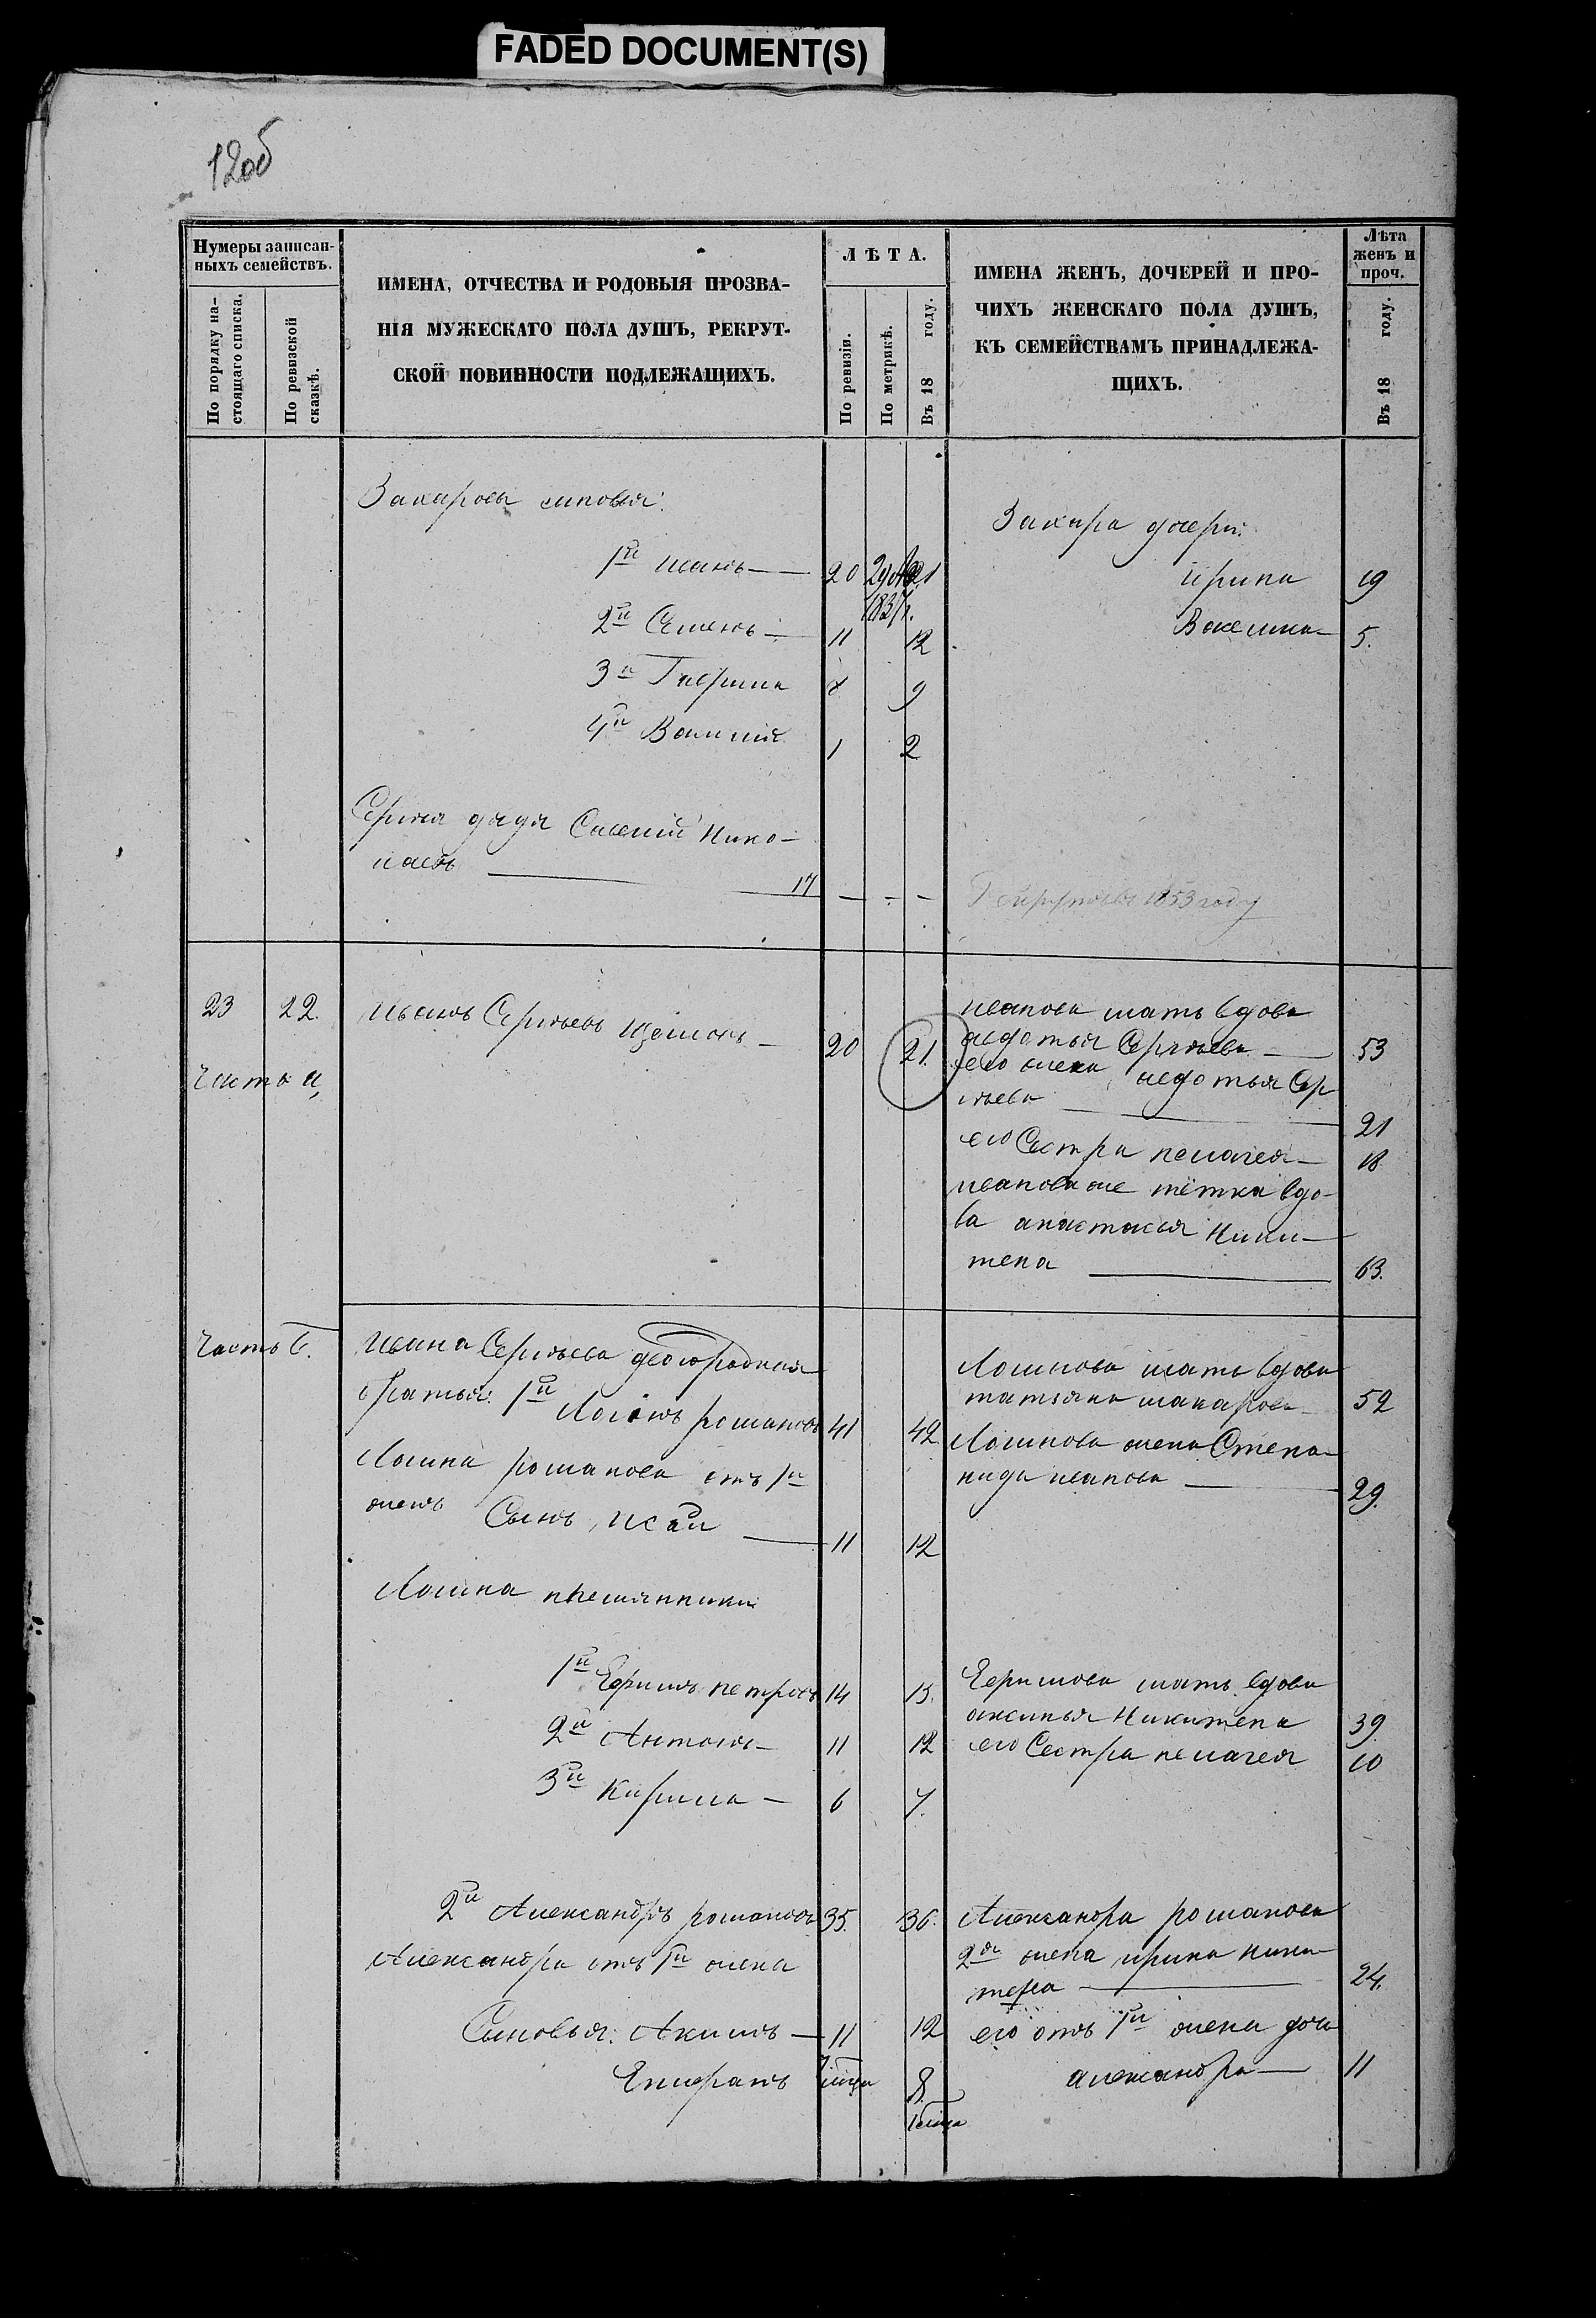 FADED DOCUMENT(S)
12об
Нумеры записан-
ныхъ семействъ.
По порядку на-
стоящаго списка.
По ревизской
сказкѣ.
ИМЕНА, ОТЧЕСТВА И РОДОВЫЯ ПРОЗВА-
НІЯ МУЖЕСКАГО ПОЛА ДУШЪ, РЕКРУТ-
СКОЙ ПОВИННОСТИ ПОДЛЕЖАЩИХЪ.
ЛѢТА.
По ревизіи.
По метрикѣ.
Въ 18 году.
ИМЕНА ЖЕНЪ, ДОЧЕРЕЙ И ПРО-
ЧИХЪ ЖЕНСКАГО ПОЛА ДУШЪ,
КЪ СЕМЕЙСТВАМЪ ПРИНАДЛЕЖА-
ЩИХЪ.
Лѣта
женъ и
проч.
Въ 18 году.
Захаровы сыновья:
Захара дочери:
1й иванъ 20 21
1831
ирина 19
2й Семенъ 11 12
5.
3й Гаврила 8 9
4й Василий 1 2
Сергѣя дядя Савелій Нико-
лаевъ 17 - - -
1853 году
23 22. иванъ Сергѣевъ 20 21.
иванова мать вдова
авдотья Сергѣева 53
Часть а,
его жена авдотья Сер
гѣева 21
его Сестра пелагея 18
иванова же тётка вдо-
ва анастасья Ники-
тена 63.
Часть б. ивана Сергѣева двоюродныя
братья: 1й Логинъ романовъ 41 42
Логинова мать вдова
татьяна макарова 52
Логина романова отъ 1й
жены Сынъ, исай 11 12
Логинова жена Степа-
нида иванова 29.
Логина племянники
1й Ефимъ петровъ 14 15.
Ефимова мать вдова
аксинья Никитена 39.
2й Антонъ 11 12
его Сестра пелагея 10
3й Кирила 6 7.
2й Александръ романовъ 35. 36.
Александра романова
2я жена ирина ники-
тена 24.
Александра отъ 1й жена
Сыновья: Акимъ 11 12
его отъ 1й жена дочь
александра 11
8.